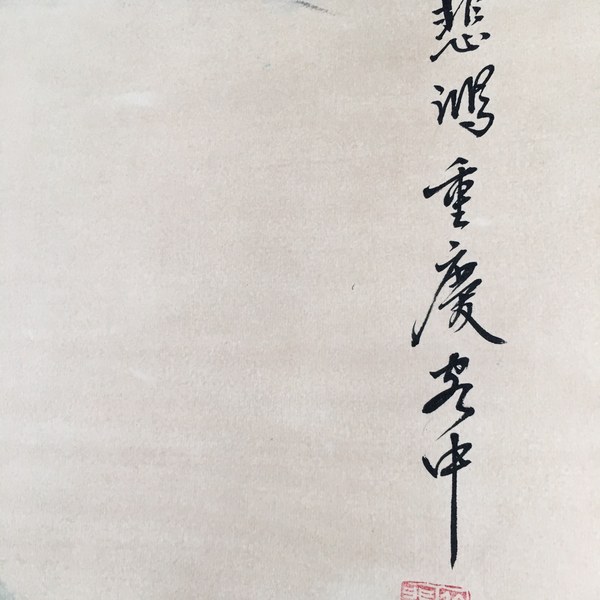 悲鴻重慶客中